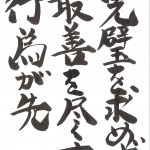 完璧を求め
最善を尽く
行為が先